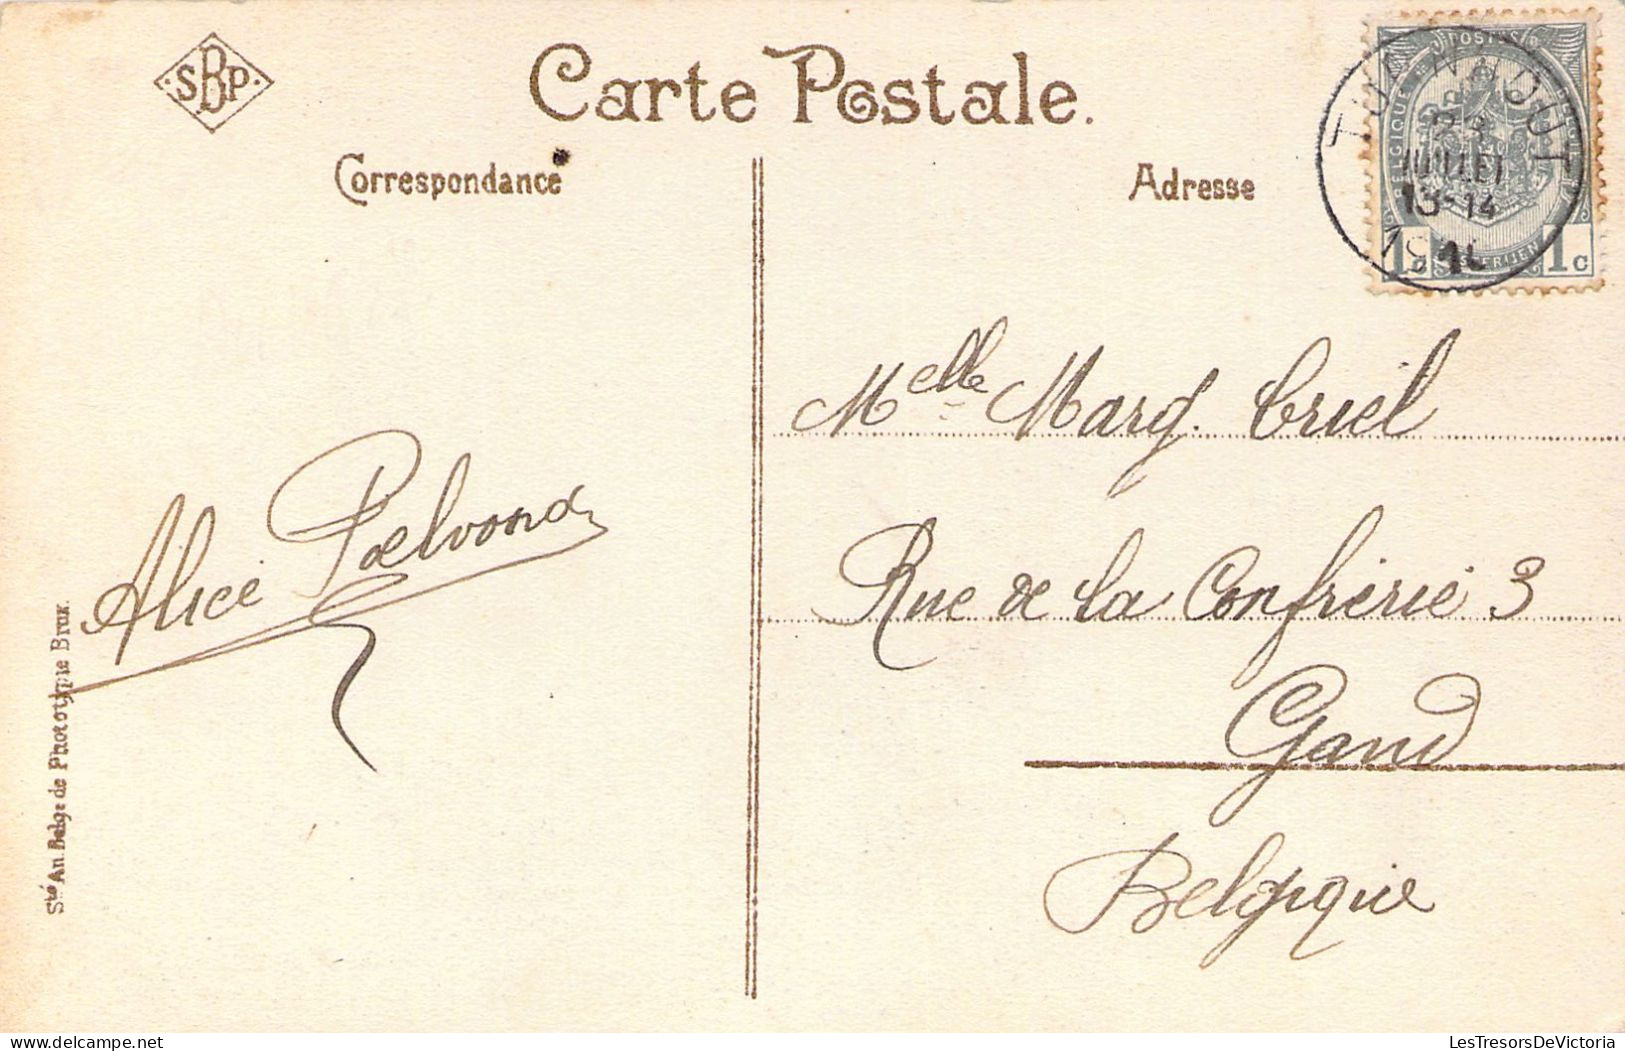 SBP
Carte Postale.
Correspondance
Adresse
POSTES
BELGIQUE
JUILLET
13-14
1c
1c
Melle Marg. Criel
Rue de la Confrérie 3
Gand
Belgique
Alice
Sté An. Belge de Phototypie Brux.
LesTresorsDeVictoria
https://www.delcampe.net
LesTresorsDeVictoria